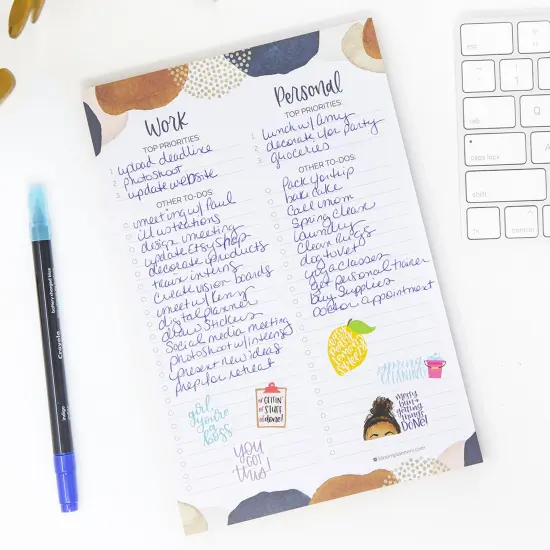 Work
TOP PRIORITIES:
1 upload deadline
2 photoshoot
3 update website
OTHER TO-DOS:
meeting w/ Paul
illustrations
design meeting
update Etsy shop
decorate products
train interns
create vision boards
meet w/ Kenzy
digital planner
draw stickers
social media meeting
photoshoot w/ interns
present new ideas
prep for retreat
girl
you're
a
BOSS
GETTIN'
STUFF
done!
YOU
GOT
THIS!
Personal
TOP PRIORITIES:
1 lunch w/ Amy
2 decorate for party
3 groceries
OTHER TO-DOS:
Pack for trip
bake cake
Call mom
Spring clean
laundry
clean rugs
dog to vet
yoga classes
get personal trainer
buy supplies
Doctor appointment
spring
CLEANING
MESSY
bun +
getting
things
DONE!
bloomplanners.com
Crayola
Indigo
esc
tab
caps lock
shift
fn
control